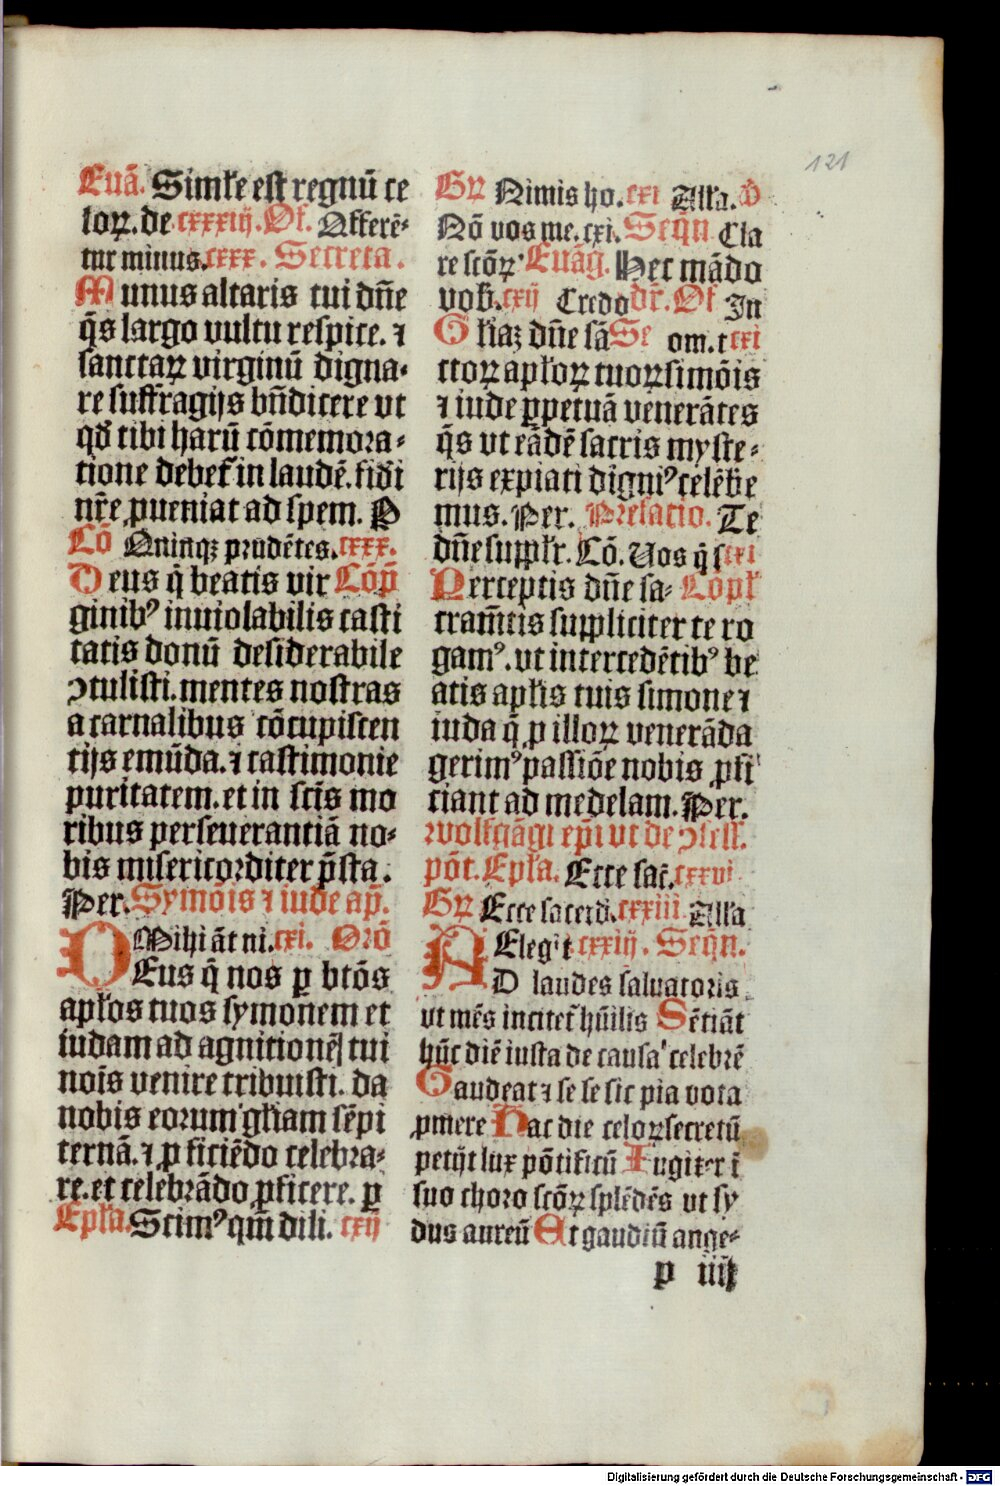 121
Euã. Simłe est regnũ ce
loꝝ. de cxxxiij. Of. Afferē-
tur minus. cxxx. Secreta.
Munus altaris tui dñe
q̃s largo vultu respice. ⁊
sanctaꝝ virginũ digna-
re suffragijs bñdicere vt
qđ tibi harũ cõmemora-
tione debet᷑ in laudẽ. fidi
nr̃e ꝓueniat ad spem. P
Cõ Quinqꝫ prudẽtes. cxxx.
Deus q̃ beatis vir Cõp̃
ginibꝰ inuiolabilis casti
tatis donũ desiderabile
ↄtulisti. mentes nostras
a carnalibus cõcupiscen
tijs emũda. ⁊ castimonie
puritatem. et in scĩs mo
ribus perseuerantiã no-
bis misericorditer p̃sta.
Per. Symõis ⁊ iude ap̃.
Mihi ãt ni. cxi. Orõ
DEus q̃ nos ꝑ btõs
apłos tuos symonem et
iudam ad agnitionẽ tui
noĩs venire tribuisti. da
nobis eorum głiam sẽpi
ternã. ⁊ ꝓficiẽdo celebra-
re. et celebrãdo ꝓficere. ꝑ
Epła. Scimꝰ qm̃ dili. cxij
Gꝝ Nimis ho. cxi Ałła. ꝟ
Nõ vos me. cxi. Seqñ Cla
re scõꝝ Euãg. Hec mãdo
vob̃. cxij Credo dr̃. Of In
Głiaꝫ dñe sã Se om. t cxi
ctoꝝ apłoꝝ tuoꝝ simõis
⁊ iude ꝑpetuã venerãtes
q̃s vt eãdẽ sacris myste-
rijs expiati digniꝰ celẽbre
mus. Per. Prefacio. Te
dñe supplr̃. Cõ. Uos q̃ s cxi
Perceptis dñe sa- Cõpł
cram̃tis suppliciter te ro
gamꝰ. vt intercedẽtibꝰ be
atis apłis tuis simone ⁊
iuda q̃ ꝓ illoꝝ venerãda
gerimꝰ passiõe nobis ꝓfi
ciant ad medelam. Per.
wolfgãgi ep̃i vt de ↄfess.
põt. Epła. Ecce sac̃. cxxvi
Gꝝ Ecce sacerđ. cxxiii Ałła
Elegit cxxiij. Seqñ.
AD laudes saluatoris
vt mẽs incitet᷑ hũilis Sẽtiãt
hũc diẽ iusta de causa celebrẽ
Gaudeat ⁊ se se sic pia vota
ꝓmere Hac die celoꝝ secretũ
petijt lux põtificũ Fugiter ĩ
suo choro scõꝝ splẽdẽs vt sy
dus aureũ Et gaudiũ ange-
p iiij
Digitalisierung gefördert durch die Deutsche Forschungsgemeinschaft - DFG